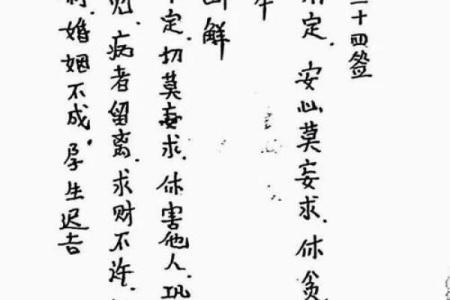 二十四签
定.安心莫妄求.休贪
解
定.切莫妄求.休害他人.巩
病者留离.求财不许.
婚姻不成,孕生迟吉